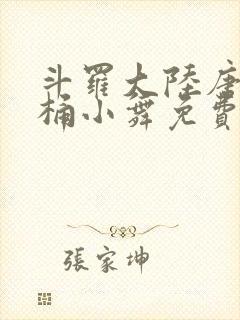 斗羅大陸唐
桶小舞免費
張家坤